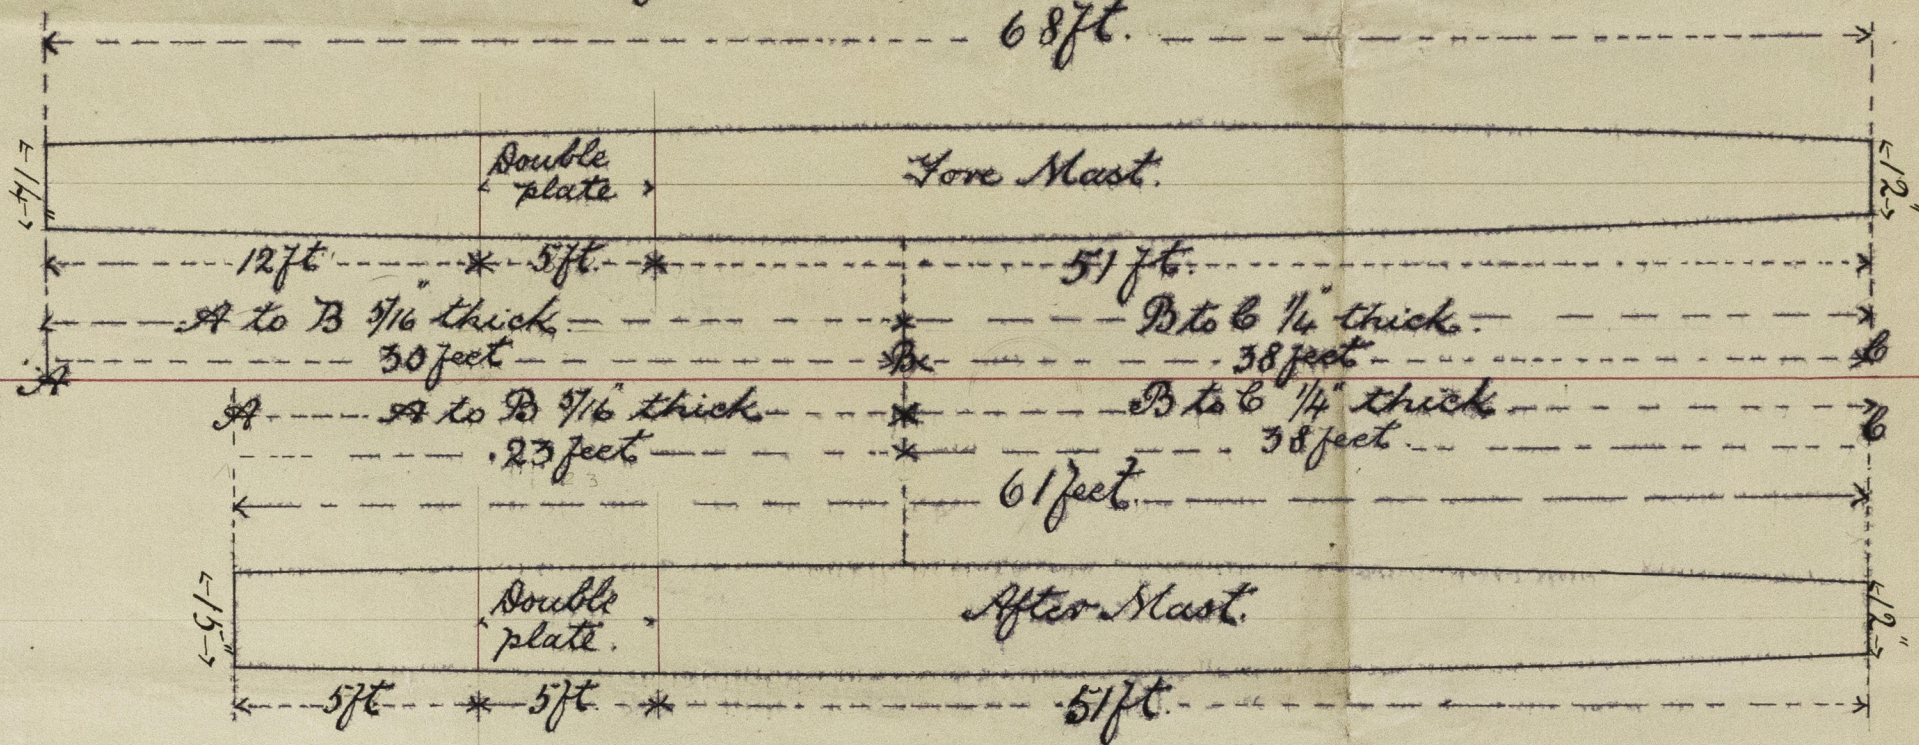 68ft.
14"
Double
plate
Fore Mast.
12"
12ft 5ft. 51ft.
A to B 5/16" thick. B to C 1/4" thick.
30 feet B 38 feet C
A
A A to B 5/16" thick B to C 1/4" thick
C
23 feet 38 feet.
61 feet.
15"
Double
plate.
After Mast.
12"
5ft 5ft. 51ft.